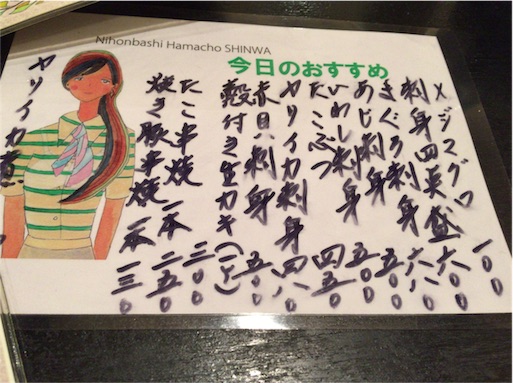 Nihonbashi Hamacho SHINWA
今日のおすすめ
メジマグロ
刺身四点盛
まぐろ刺身 六八〇
あじ刺身 五〇〇
いわし刺身 五〇〇
たこぶつ 四五〇
ヤリイカ刺身 四八〇
赤貝刺身 五〇〇
殻付き生カキ(一コ) 三〇〇
たこ串焼 一本 二五〇
焼き豚串焼 一本 一三〇
ヤリイカ煮